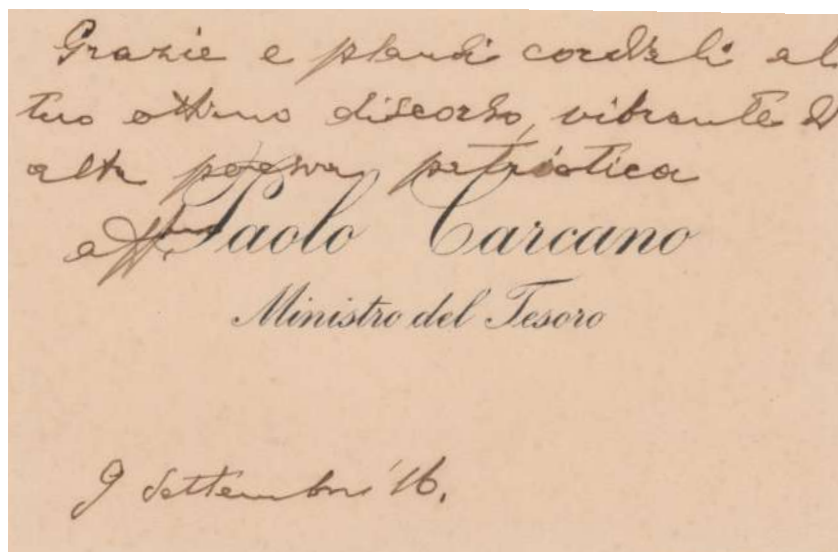 Grazie e plausi cordiali al
tuo ottimo discorso, vibrante di
alta poesia patriottica
aff.mo Paolo Carcano
Ministro del Tesoro
9 Settembre '16.